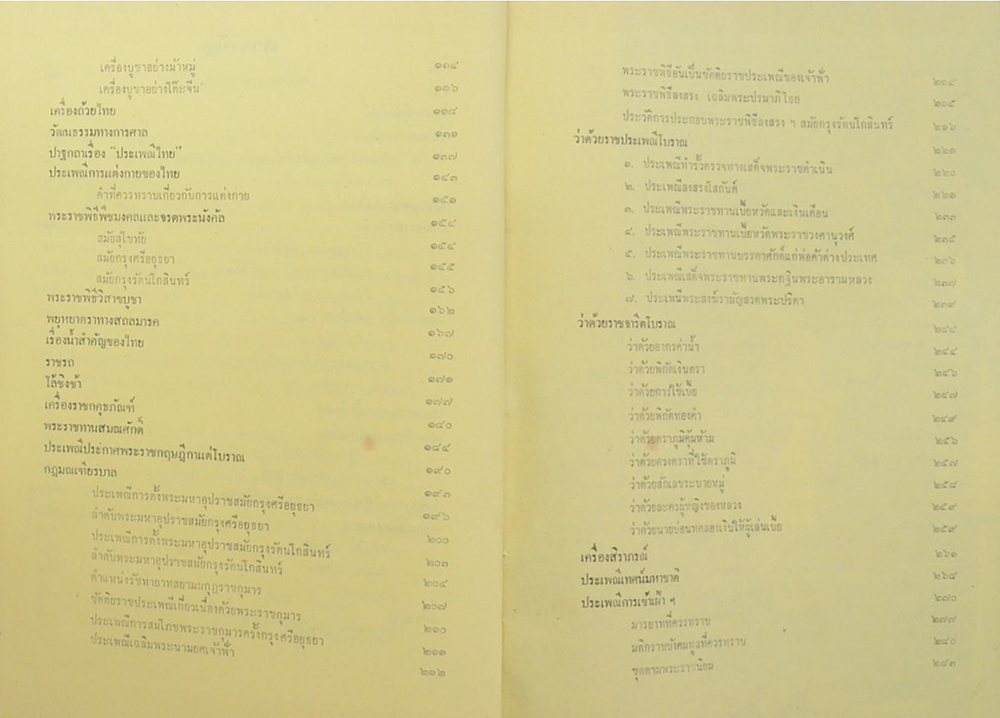 เครื่องบูชาอย่างม้าหมู่ ๑๑๔
เครื่องบูชาอย่างโต๊ะจีน ๑๑๖
เครื่องถ้วยไทย ๑๑๘
วัฒนธรรมทางการศาล ๑๓๑
ปาฐกถาเรื่อง "ประเพณีไทย" ๑๓๗
ประเพณีการแต่งกายของไทย ๑๔๓
คำที่ควรทราบเกี่ยวกับการแต่งกาย ๑๕๑
พระราชพิธีพืชมงคลและจรดพระนังคัล ๑๕๔
สมัยสุโขทัย ๑๕๔
สมัยกรุงศรีอยุธยา ๑๕๕
สมัยกรุงรัตนโกสินทร์ ๑๕๖
พระราชพิธีวิสาขบูชา ๑๖๒
พยุหยาตราทางสถลมารค ๑๖๗
เรื่องน้ำสำคัญของไทย ๑๗๐
ราชรถ ๑๗๑
โล้ชิงช้า ๑๗๗
เครื่องราชกกุธภัณฑ์ ๑๘๐
พระราชทานสมณศักดิ์ ๑๘๔
ประเพณีประกาศพระราชกฤษฎีกาแต่โบราณ ๑๙๐
กฎมณเฑียรบาล ๑๙๓
ประเพณีการตั้งพระมหาอุปราชสมัยกรุงศรีอยุธยา ๑๙๖
ลำดับพระมหาอุปราชสมัยกรุงศรีอยุธยา ๒๐๐
ประเพณีการตั้งพระมหาอุปราชสมัยกรุงรัตนโกสินทร์ ๒๐๓
ลำดับพระมหาอุปราชสมัยกรุงรัตนโกสินทร์ ๒๐๔
ตำแหน่งรัชทายาทสยามมกุฎราชกุมาร ๒๐๗
ขัตติยราชประเพณีเกี่ยวเนื่องด้วยพระราชกุมาร ๒๑๐
ประเพณีการสมโภชพระราชกุมารครั้งกรุงศรีอยุธยา ๒๑๑
ประเพณีเฉลิมพระนามยศเจ้าฟ้า ๒๑๒
พระราชพิธีอันเป็นขัตติยราชประเพณีของเจ้าฟ้า ๒๑๔
พระราชพิธีลงสรง เฉลิมพระปรมาภิไธย ๒๑๕
ประวัติการประกอบพระราชพิธีลงสรง ฯ สมัยกรุงรัตนโกสินทร์ ๒๑๖
ว่าด้วยราชประเพณีโบราณ ๒๒๑
๑. ประเพณีทำรั้วตรวจทางเสด็จพระราชดำเนิน ๒๒๐
๒. ประเพณีลงสรงโสกันต์ ๒๒๑
๓. ประเพณีพระราชทานเบี้ยหวัดและเงินเดือน ๒๓๓
๔. ประเพณีพระราชทานเบี้ยหวัดพระราชวงศานุวงศ์ ๒๓๕
๕. ประเพณีพระราชทานบรรดาศักดิ์แก่พ่อค้าต่างประเทศ ๒๓๖
๖. ประเพณีเสด็จพระราชทานพระกฐินพระอารามหลวง ๒๓๗
๗. ประเพนีพระสงฆ์รามัญสวดพระปริตา ๒๓๙
ว่าด้วยราชจาริตโบราณ ๒๔๔
ว่าด้วยอากรค่าน้ำ ๒๔๔
ว่าด้วยพิกัดเงินตรา ๒๔๖
ว่าด้วยการใช้เบี้ย ๒๔๗
ว่าด้วยพิกัดทองคำ ๒๔๙
ว่าด้วยตราภูมิคุ้มห้าม ๒๕๖
ว่าด้วยดวงตราที่ใช้ตราภูมิ ๒๕๗
ว่าด้วยสักเลขระบายหมู่ ๒๕๘
ว่าด้วยละครผู้หญิงของหลวง ๒๕๙
ว่าด้วยนายบ่อนทดลองเงินให้ผู้เล่นเบี้ย ๒๕๙
เครื่องสิราภรณ์ ๒๖๑
ประเพณีเทศน์มหาชาติ ๒๖๘
ประเพณีการเข้าเฝ้า ฯ ๒๗๐
มารยาทที่ควรทราบ ๒๗๗
มติกราบบังคมทูลที่ควรทราบ ๒๘๐
ชุดตามพระราชนิยม ๒๘๓